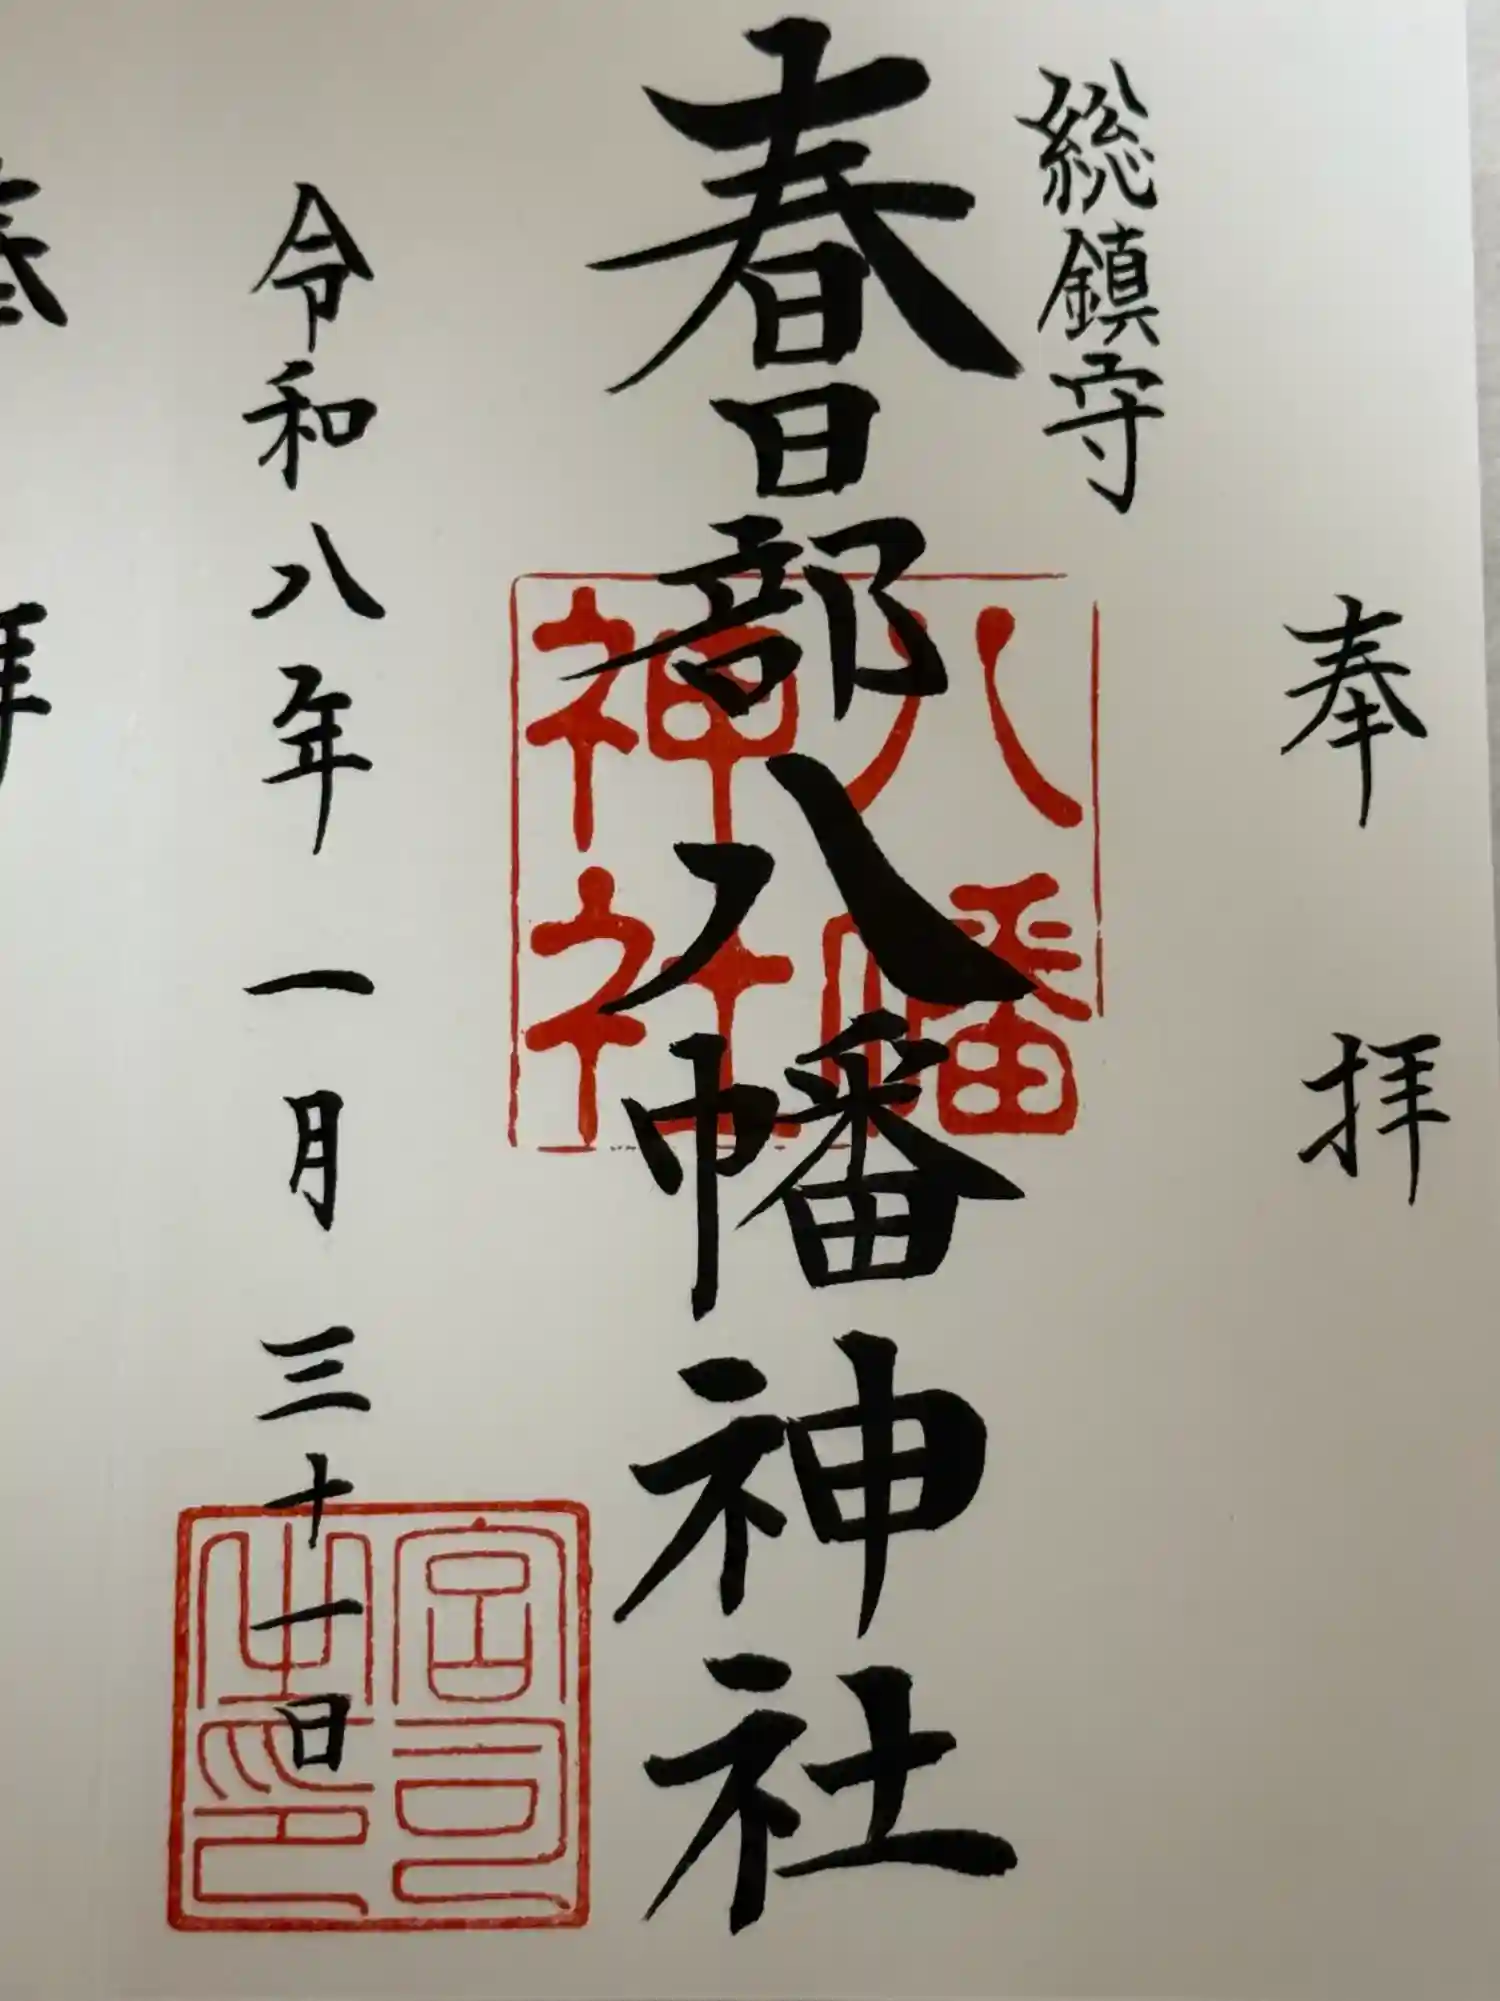 奉拝
総鎮守
春日部八幡神社
八幡
神社
令和八年一月三十一日
宮司
之印
奉拝